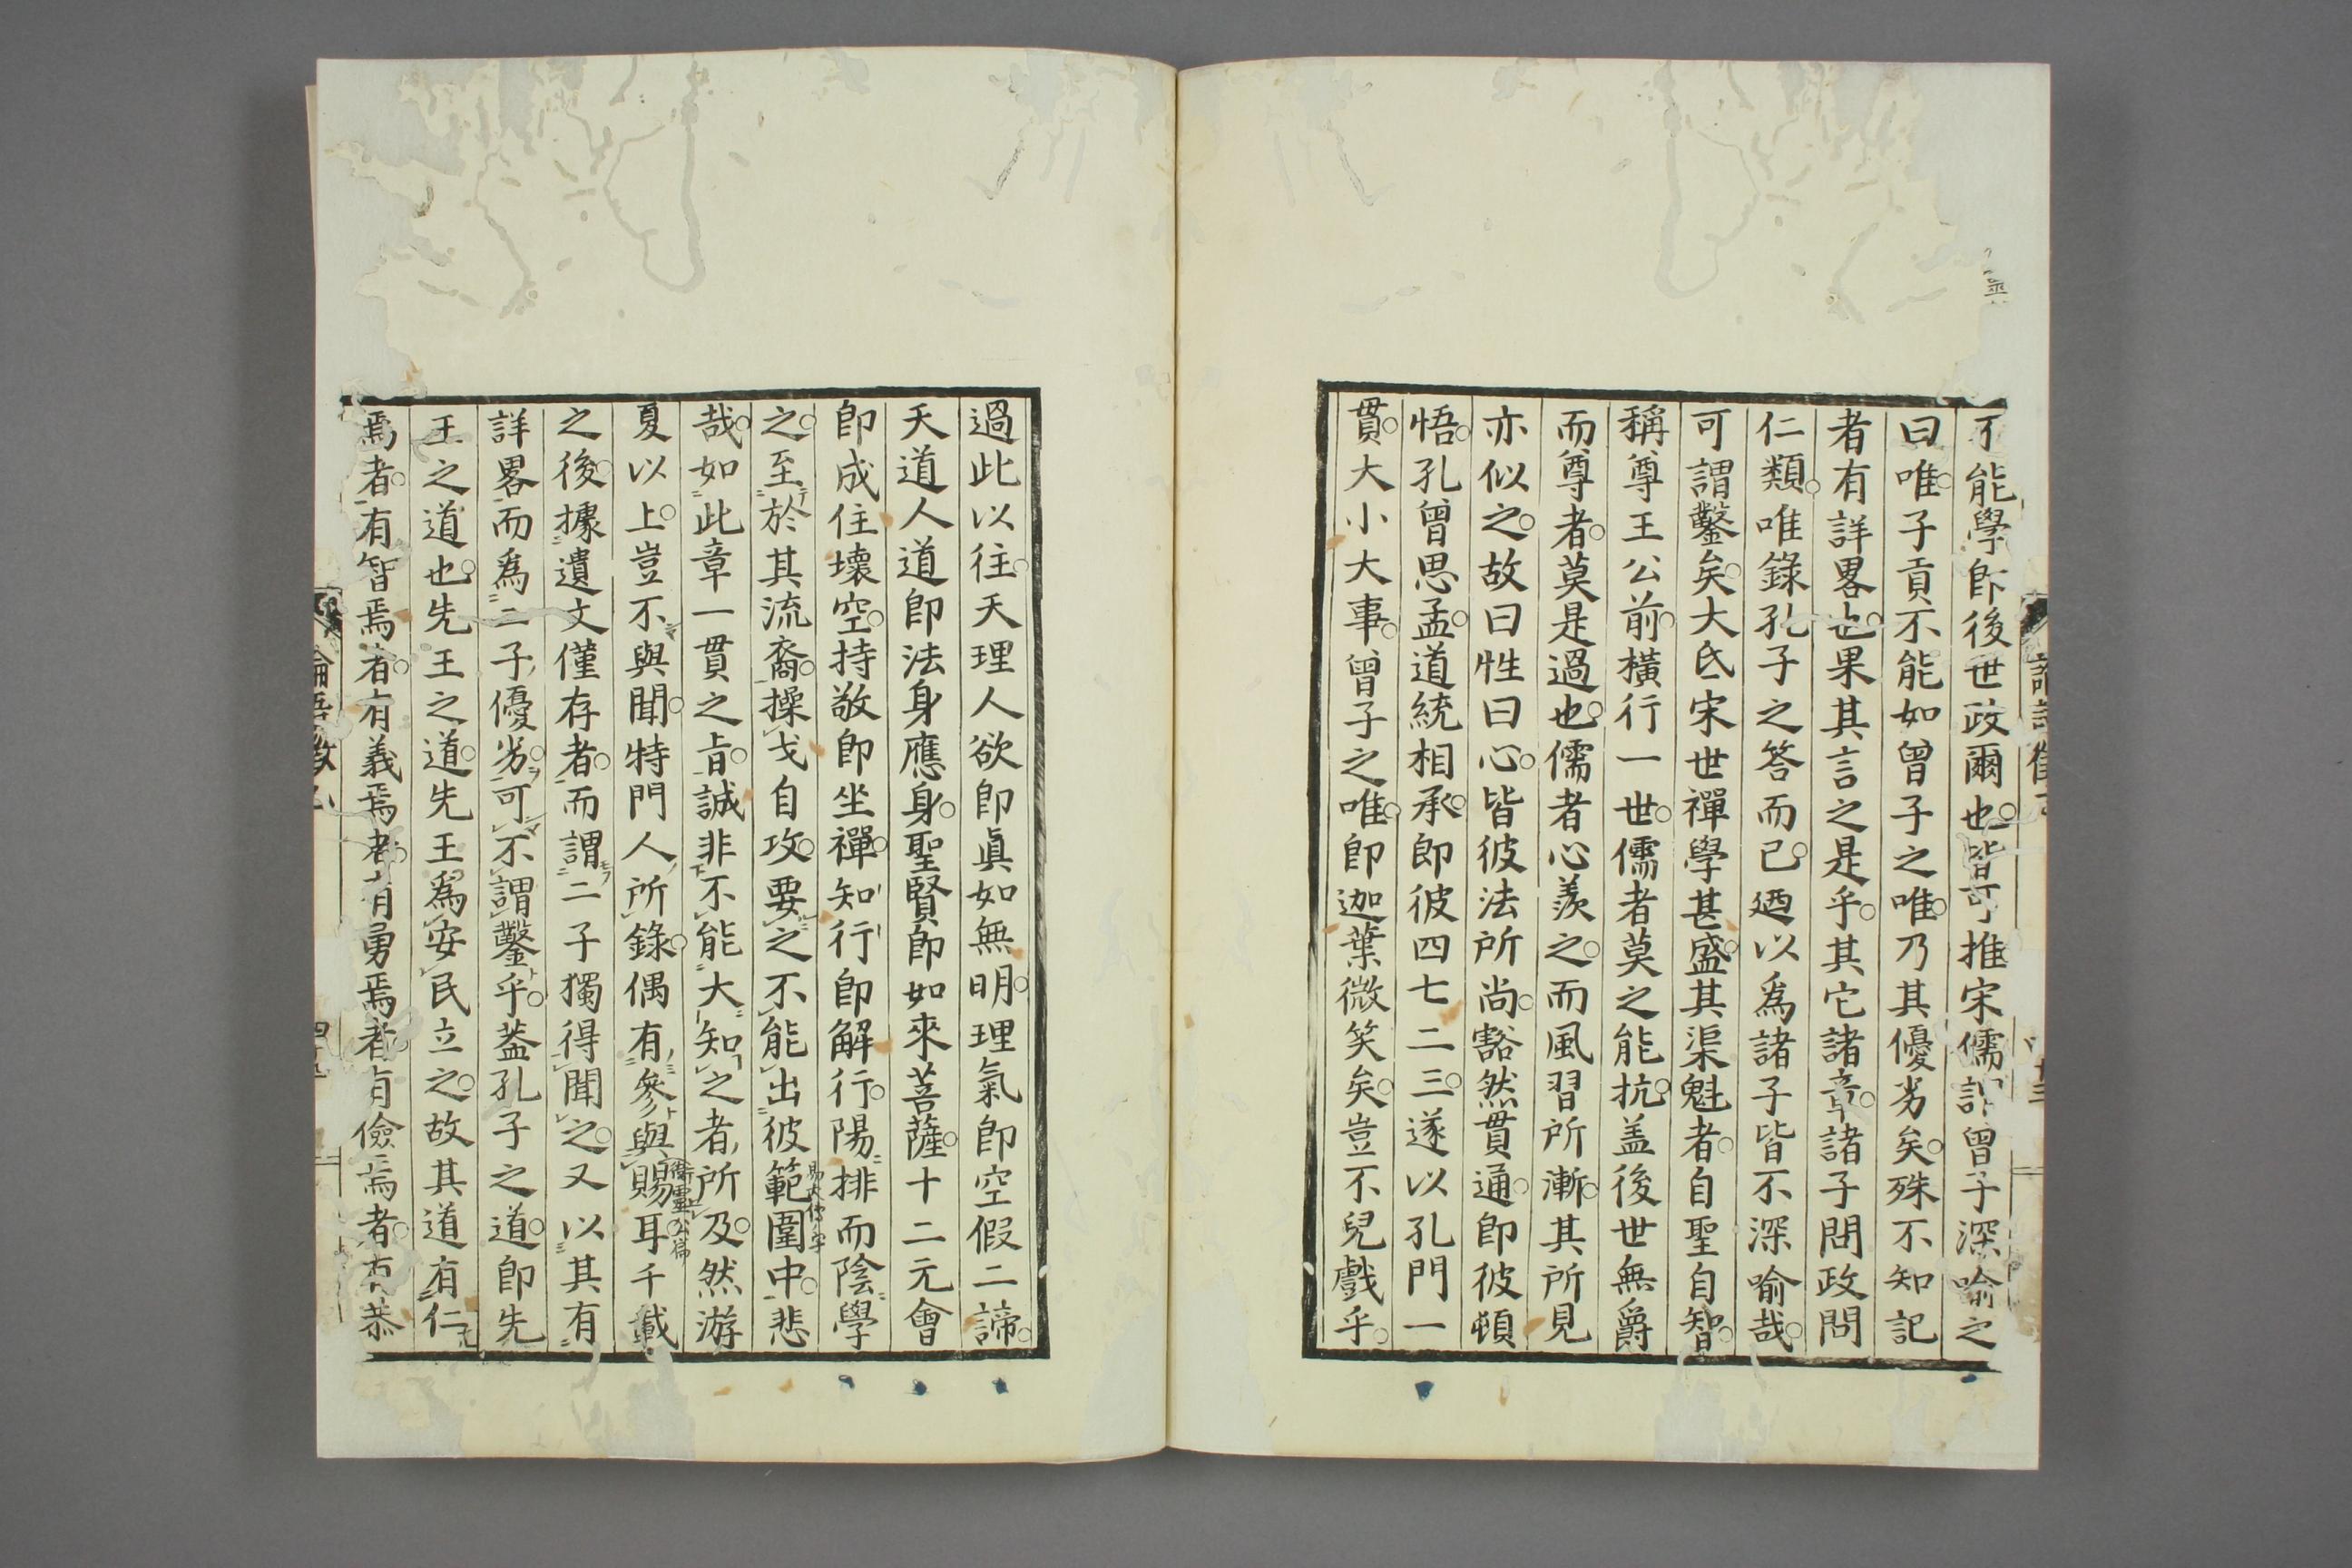 不能學卽後世政爾也皆可推宋儒謂曾子深喻之
曰唯子貢不能如曾子之唯乃其優劣矣殊不知記
者有詳畧也果其言之是乎其它諸章諸子問政問
仁類唯錄孔子之答而已廼以爲諸子皆不深喻哉
可謂鑿矣大氐宋世禪學甚盛其渠魁者自聖自智
稱尊王公前橫行一世儒者莫之能抗盖後世無爵
而尊者莫是過也儒者心羨之而風習所漸其所見
亦似之故曰性曰心皆彼法所尚豁然貫通卽彼頓
悟孔曾思孟道統相承卽彼四七二三遂以孔門一
貫大小大事曾子之唯卽迦葉微笑矣豈不兒戲乎
過此以往天理人欲卽眞如無明理氣卽空假二諦
天道人道卽法身應身聖賢卽如來菩薩十二元會
卽成住壞空持敬卽坐禪知行卽解行陽排而陰學
之至於其流裔操戈自攻要之不能出彼範圍中悲
易大傳ノ字
哉如此章一貫之旨誠非不能大知之者所及然游
夏以上豈不與聞特門人所錄偶有參與賜耳千載
衞靈公篇
之後據遺文僅存者而謂二子獨得聞之又以其有
詳畧而爲二子優劣可不謂鑿乎葢孔子之道卽先
王之道也先王之道先王爲安民立之故其道有仁
焉者有智焉者有義焉者有勇焉者有儉焉者有恭
論語徵乙